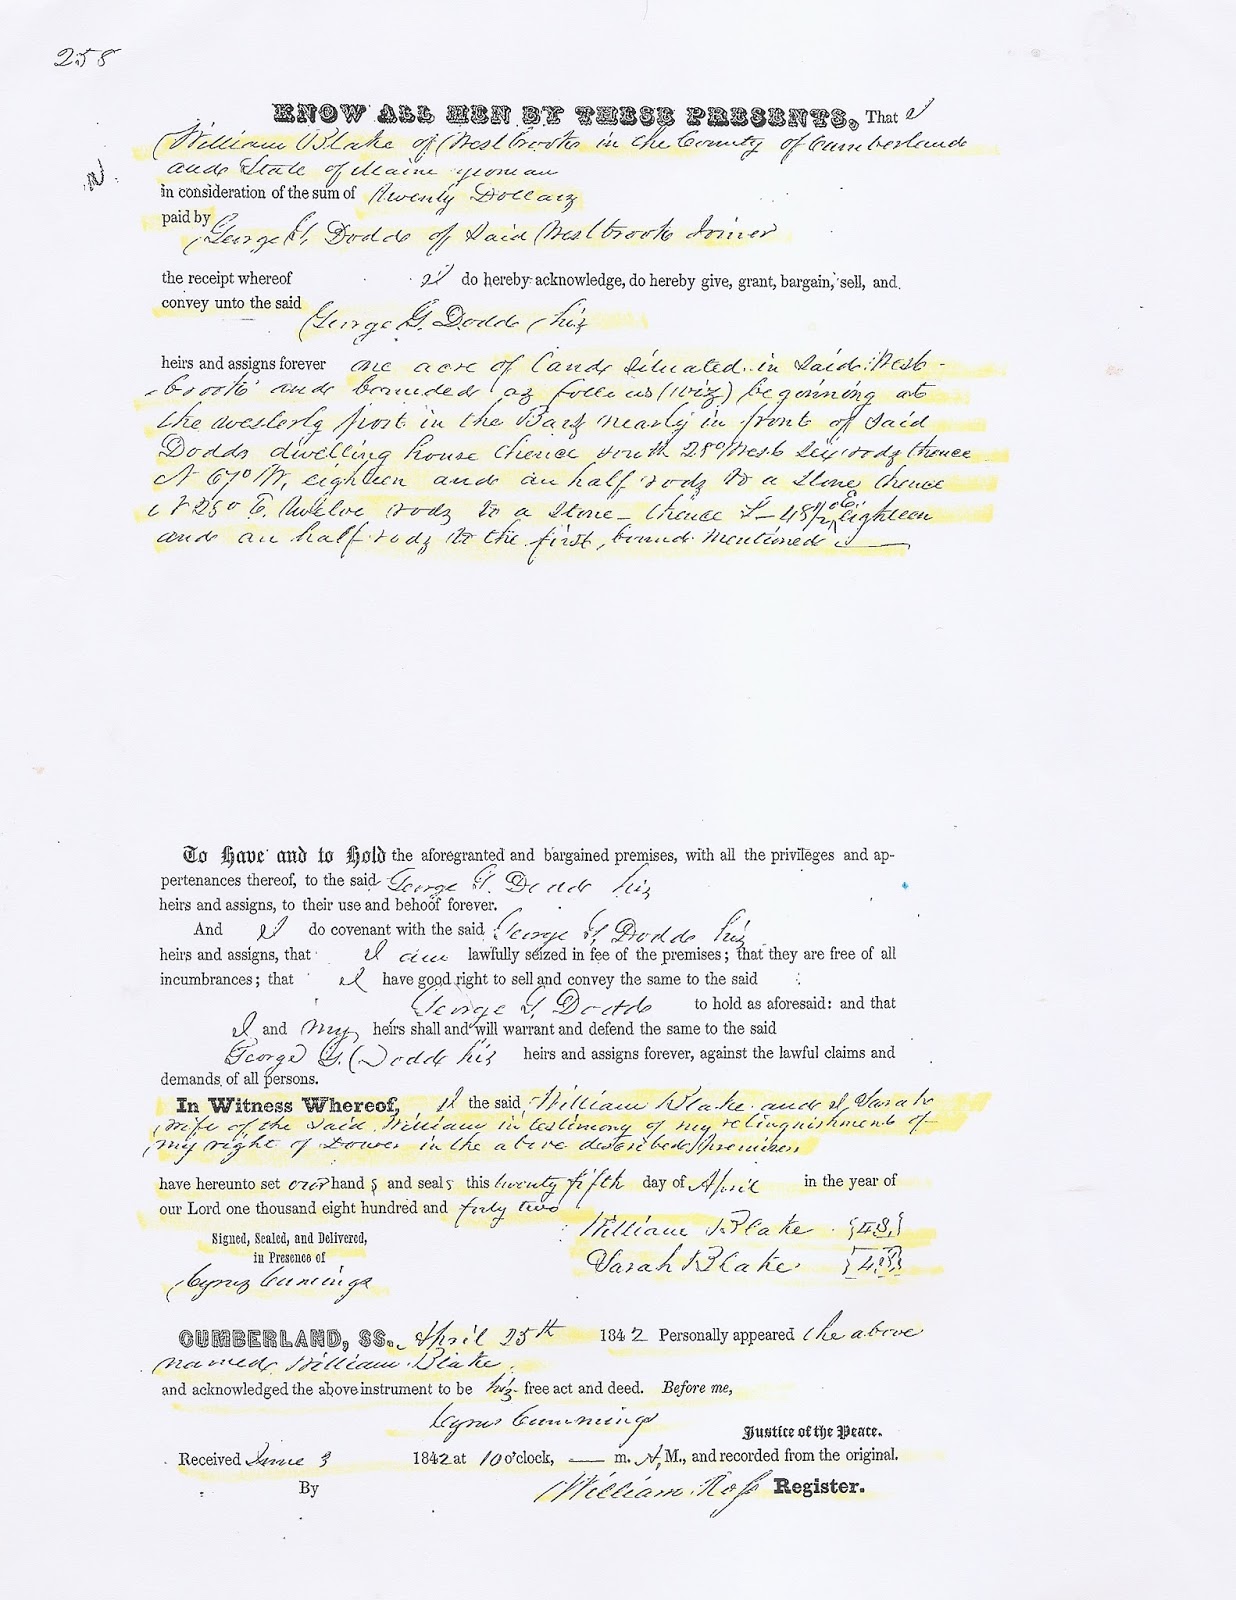 258
KNOW ALL MEN BY THESE PRESENTS, That I
William Blake of Westbrook in the County of Cumberland
and State of Maine yeoman
in consideration of the sum of Twenty Dollars
paid by George G. Dodds of said Westbrook Joiner
the receipt whereof I do hereby acknowledge, do hereby give, grant, bargain, sell, and
convey unto the said
George G. Dodds his
heirs and assigns forever one acre of land situated in said West-
brook and bounded as follows (viz) beginning at
the westerly post in the Bars nearly in front of said
Dodds dwelling house thence south 25° West Six rods thence
N 67° W. eighteen and an half rods to a stone thence
N 25° E. Twelve rods to a stone - thence S- 48½° E. eighteen
and an half rods to the first bound mentioned
To Have and to Hold the aforegranted and bargained premises, with all the privileges and ap-
pertenances thereof, to the said George G. Dodds his
heirs and assigns, to their use and behoof forever.
And I do covenant with the said George G. Dodds his
heirs and assigns, that I am lawfully seized in fee of the premises; that they are free of all
incumbrances; that I have good right to sell and convey the same to the said
George G. Dodds to hold as aforesaid: and that
I and my heirs shall and will warrant and defend the same to the said
George G. Dodds his heirs and assigns forever, against the lawful claims and
demands of all persons.
In Witness Whereof, I the said William Blake and I, Sarah
wife of the said William in testimony of my relinquishment of
my right of Dower in the above described premises
have hereunto set our hands and seals this twenty fifth day of April in the year of
our Lord one thousand eight hundred and forty two
William Blake {LS.}
Signed, Sealed, and Delivered,
in Presence of
Sarah Blake {LS}
Cyrus Cummings
CUMBERLAND, SS. April 25th 1842 Personally appeared the above
named William Blake
and acknowledged the above instrument to be his free act and deed. Before me,
Cyrus Cummings
Justice of the Peace.
Received June 3 1842 at 10 o'clock, — m. A, M., and recorded from the original.
By William Ross Register.